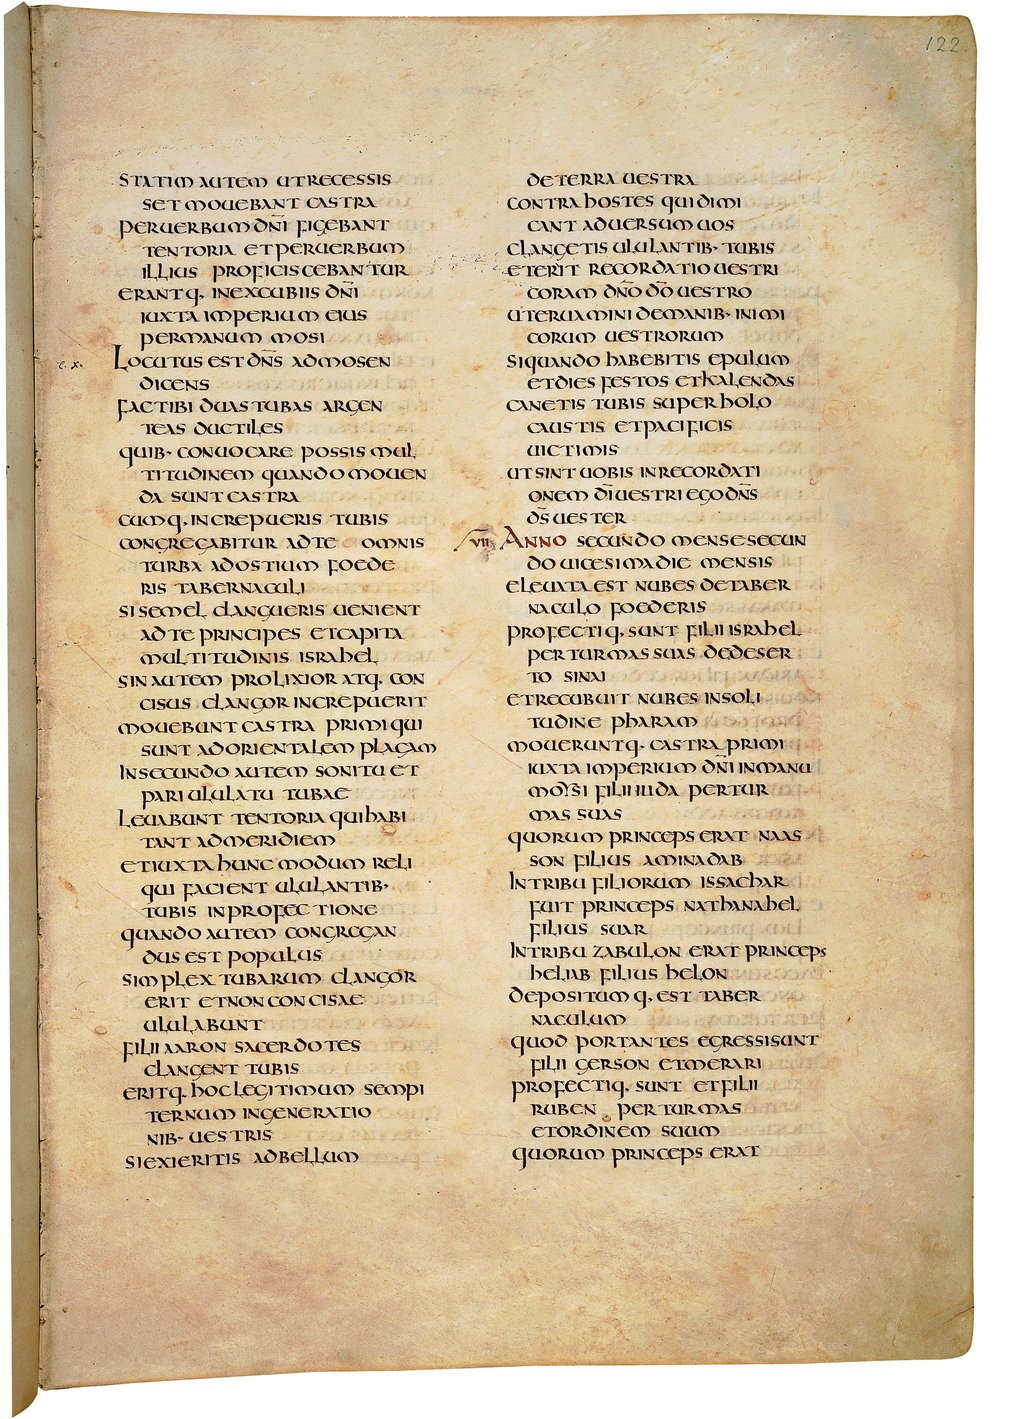 122
STATIM AUTEM UTRECESSIS
SET MOUEBANT CASTRA
PERUERBUM DN̄I FIGEBANT
TENTORIA ETPERUERBUM
ILLIUS PROFICISCEBANTUR
ERANTQ· INEXCUBIIS DN̄I
IUXTA IMPERIUM EIUS
PERMANUM MOSI
c. x. LOCUTUS EST DN̄S ADMOSEN
DICENS
FACTIBI DUASTUBAS ARGEN
TEAS DUCTILES
QUIB· CONUOCARE POSSIS MUL
TITUDINEM QUANDOMOUEN
DA SUNT CASTRA
CUMQ· INCREPUERIS TUBIS
CONGREGABITUR ADTE OMNIS
TURBA ADOSTIUM FOEDE
RIS TABERNACULI
SISEMEL CLANGUERIS UENIENT
ADTE PRINCIPES ETCAPITA
MULTITUDINIS ISRAHEL
SINAUTEM PROLIXIOR ATQ· CON
CISUS CLANGORINCREPUERIT
MOUEBUNT CASTRA PRIMI QUI
SUNT ADORIENTALEM PLAGAM
INSECUNDO AUTEM SONITU ET
PARI ULULATU TUBAE
LEUABUNT TENTORIA QUIHABI
TANT ADMERIDIEM
ETIUXTA HUNC MODUM RELI
QUI FACIENT ULULANTIB·
TUBIS INPROFECTIONE
QUANDO AUTEM CONGREGAN
DUS EST POPULUS
SIMPLEX TUBARUM CLANGOR
ERIT ETNONCONCISAE
ULULABUNT
FILII AARON SACERDOTES
CLANGENT TUBIS
ERITQ· HOCLEGITIMUM SEMPI
TERNUM INGENERATIO
NIB· UESTRIS
SIEXIERITIS ADBELLUM
DETERRA UESTRA
CONTRA HOSTES QUIDIMI
CANT ADUERSUM UOS
CLANGETIS ULULANTIB· TUBIS
ETERIT RECORDATIO UESTRI
CORAM DN̄O D̄O UESTRO
UTERUAMINI DEMANIB· INIMI
CORUM UESTRORUM
SIQUANDO HABEBITIS EPULUM
ETDIES FESTOS ETKALENDAS
CANETIS TUBIS SUPERHOLO
CAUSTIS ETPACIFICIS
UICTIMIS
UTSINT UOBIS INRECORDATI
ONEM D̄I UESTRI EGO DN̄S
D̄S UESTER
VII ANNO SECUNDO MENSE SECUN
DO UICESIMA DIE MENSIS
ELEUATA EST NUBES DETABER
NACULO FOEDERIS
PROFECTIQ· SUNT FILII ISRAHEL
PER TURMAS SUAS DEDESER
TO SINAI
ETRECUBUIT NUBES INSOLI
TUDINE PHARAM
MOUERUNTQ· CASTRA PRIMI
IUXTA IMPERIUM DN̄I INMANU
MOYSI FILII IUDA PERTUR
MAS SUAS
QUORUM PRINCEPS ERAT NAAS
SON FILIUS AMINADAB
INTRIBU FILIORUM ISSACHAR
FUIT PRINCEPS NATHANAHEL
FILIUS SUAR
INTRIBU ZABULON ERAT PRINCEPS
HELIAB FILIUS HELON
DEPOSITUMQ· EST TABER
NACULUM
QUOD PORTANTES EGRESSISUNT
FILII GERSON ETMERARI
PROFECTIQ· SUNT ETFILII
RUBEN PER TURMAS
ETORDINEM SUUM
QUORUM PRINCEPS ERAT